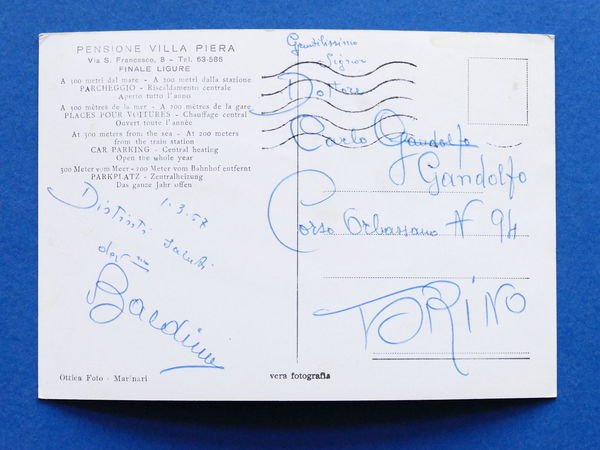 PENSIONE VILLA PIERA
Via S. Francesco, 8 - Tel. 63-586
FINALE LIGURE
A 300 metri dal mare - A 200 metri dalla stazione
PARCHEGGIO - Riscaldamento centrale
Aperto tutto l'anno
A 300 mètres de la mer - A 200 mètres de la gare
PLACES POUR VOITURES - Chauffage central
Ouvert toute l'année
At 300 meters from the sea - At 200 meters
from the train station
CAR PARKING - Central heating
Open the whole year
300 Meter vom Meer - 200 Meter vom Bahnhof entfernt
PARKPLATZ - Zentralheizung
Das ganze Jahr offen
1.3.67
Distinti saluti
Ottica Foto - Marinari
vera fotografia
Gentilissimo
Signor
Dottore
Carlo Gandolfo
Gandolfo
Corso Orbassano N 94
TORINO